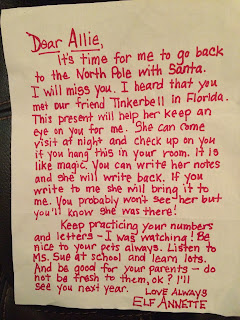 Dear Allie,
It's time for me to go back
to the North Pole with Santa.
I will miss you. I heard that you
met our friend Tinkerbell in Florida.
This present will help her keep an
eye on you for me. She can come
visit at night and check up on you
if you hang this in your room. It is
like magic. You can write her notes
and she will write back. If you
write to me she will bring it to
me. You probably won't see her but
you'll know she was there!
Keep practicing your numbers
and letters - I was watching! Be
nice to your pets always. Listen to
Ms. Sue at school and learn lots.
And be good for your parents - do
not be fresh to them, ok? I'll
see you next year.
LOVE ALWAYS
ELF ANNETTE